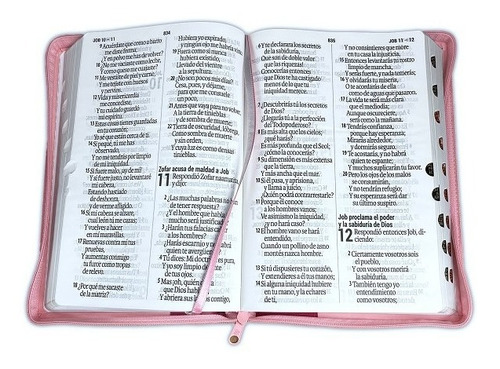 JOB 10 11
834
9 Acuérdate que como a barro
me diste forma;
¿Y en polvo me has de volver?
10 ¿No me vaciaste como leche,
Y como queso me cuajaste?
11 Me vestiste de piel y carne,
Y me tejiste con huesos
y nervios.
12 Vida y misericordia
me concediste,
Y tu cuidado guardó
mi espíritu.
13 Estas cosas tienes guardadas
en tu corazón;
Yo sé que están cerca de ti.
14 Si pequé, tú me has
observado,
Y no me tendrás por limpio
de mi iniquidad.
15 Si fuere malo, ¡ay de mí!
Y si fuere justo, no levantaré
mi cabeza,
Estando hastiado
de deshonra,
Y de verme afligido.
16 Si mi cabeza se alzare,
cual león tú me cazas;
Y vuelves a hacer
en mí maravillas.
17 Renuevas contra mí tus
pruebas,
Y aumentas conmigo
tu furor como tropas
de relevo.
18 ¿Por qué me sacaste
de la matriz?
Hubiera yo expirado,
y ningún ojo me habría
visto.
19 Fuera como si nunca
hubiera existido,
Llevado del vientre
a la sepultura.
20 ¿No son pocos mis días?
Cesa, pues, y déjame,
para que me consuele
un poco,
21 Antes que vaya para no volver,
A la tierra de tinieblas
y de sombra de muerte;
22 Tierra de oscuridad, lóbrega,
Como sombra de muerte
y sin orden,
Y cuya luz es como densas
tinieblas.
Zofar acusa de maldad a Job
11 Respondió Zofar naamatita,
y dijo:
2 ¿Las muchas palabras no han
de tener respuesta?
¿Y el hombre que habla
mucho será justificado?
3 ¿Harán tus falacias callar
a los hombres?
¿Harás escarnio y no habrá
quien te avergüence?
4 Tú dices: Mi doctrina es pura,
Y yo soy limpio delante
de tus ojos.
5 Mas ¡oh, quién diera
que Dios hablara,
Y abriera sus labios contigo,
835
JOB 11 12
6 Y te declarara los secretos
de la sabiduría,
Que son de doble valor
que las riquezas!
Conocerías entonces
que Dios te ha castigado
menos de lo que tu
iniquidad merece.
7 ¿Descubrirás tú los secretos
de Dios?
¿Llegarás tú a la perfección
del Todopoderoso?
8 Es más alta que los cielos;
¿qué harás?
Es más profunda que el Seol;
¿cómo la conocerás?
9 Su dimensión es más extensa
que la tierra,
Y más ancha que el mar.
10 Si él pasa, y aprisiona,
y llama a juicio,
¿Quién podrá contrarrestarle?
11 Porque él conoce
a los hombres vanos;
Ve asimismo la iniquidad,
¿y no hará caso?
12 El hombre vano se hará
entendido,
Cuando un pollino de asno
montés nazca hombre.
13 Si tú dispusieres tu corazón,
Y extendieres a él tus manos;
14 Si alguna iniquidad hubiere
en tu mano, y la echares
de ti,
Y no consintieres que more
en tu casa la injusticia,
15 Entonces levantarás tu rostro
limpio de mancha,
Y serás fuerte, y nada temerás;
16 Y olvidarás tu miseria,
O te acordarás de ella
como de aguas que pasaron.
17 La vida te será más clara
que el mediodía;
Aunque oscureciere,
será como la mañana.
18 Tendrás confianza,
porque hay esperanza;
Mirarás alrededor,
y dormirás seguro.
19 Te acostarás, y no habrá
quien te espante;
Y muchos suplicarán tu favor.
20 Pero los ojos de los malos
se consumirán,
Y no tendrán refugio;
Y su esperanza será dar
su último suspiro.
Job proclama el poder
y la sabiduría de Dios
12 Respondió entonces Job,
diciendo:
2 Ciertamente vosotros sois
el pueblo,
Y con vosotros morirá
la sabiduría.
3 También tengo yo
entendimiento
como vosotros;